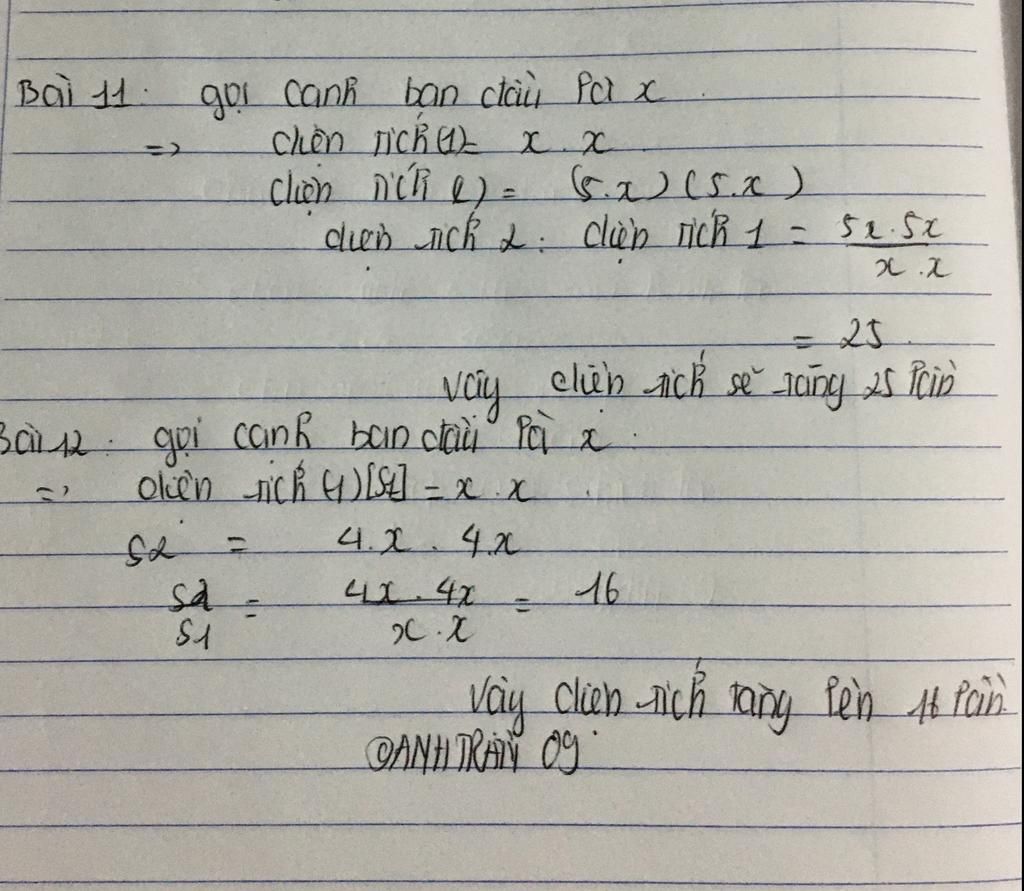 Bài 11: gọi cạnh ban đầu là x.
=> diện tích (1) = x . x
diện tích 2) = (5.x) (5.x)
diện tích 2 : diện tích 1 = \frac{5x . 5x}{x . x}
= 25
Vậy diện tích sẽ tăng 25 lần
Bài 12 : gọi cạnh ban đầu là x.
=> diện tích (1) [S1] = x . x .
S2 = 4.x . 4.x
\frac{S2}{S1} = \frac{4x . 4x}{x . x} = 16
Vậy diện tích tăng lên 16 lần.
@ANHTRẦN 09